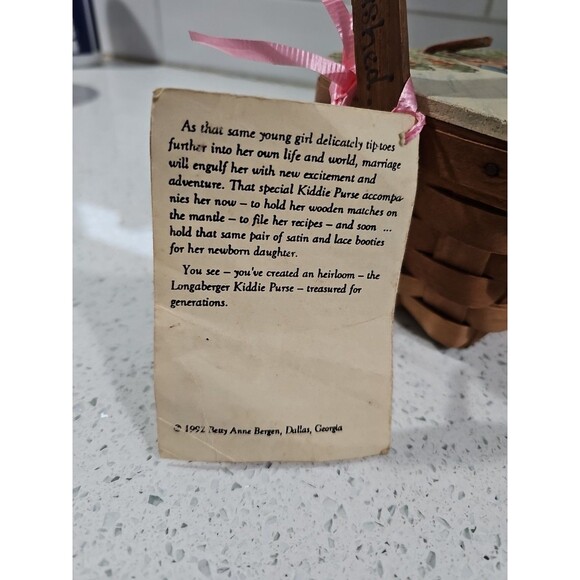 shed
As that same young girl delicately tip toes
further into her own life and world, marriage
will engulf her with new excitement and
adventure. That special Kiddie Purse accompa-
nies her now – to hold her wooden matches on
the mantle – to file her recipes – and soon ...
hold that same pair of satin and lace booties
for her newborn daughter.
You see – you've created an heirloom – the
Longaberger Kiddie Purse – treasured for
generations.
© 1992 Betty Anne Bergen, Dallas, Georgia